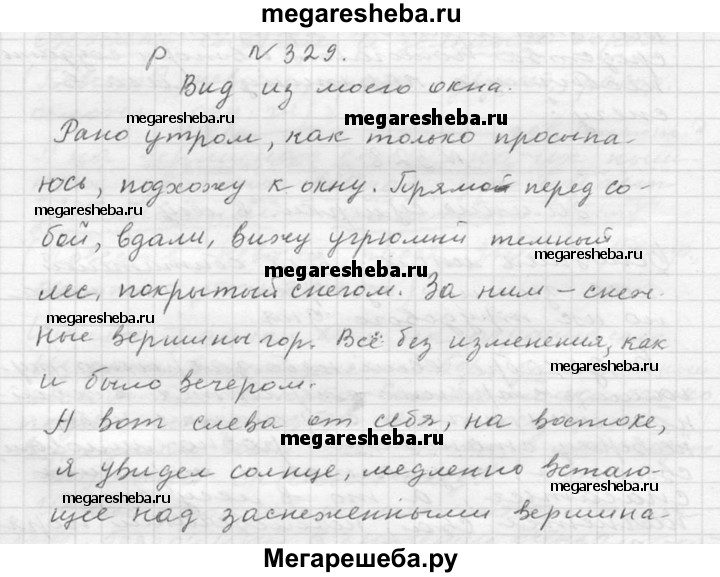 megaresheba.ru
р № 329.
Вид из моего окна.
megaresheba.ru
megaresheba.ru
Рано утром, как только просыпа-
юсь, подхожу к окну. Прямой перед со-
megaresheba.ru
бой, вдали, вижу угрюмый темный
megaresheba.ru
megaresheba.ru
лес, покрытый снегом. За ним - снеж-
ные вершины гор. Всё без изменения, как
megaresheba.ru
megaresheba.ru
и было вечером.
А вот слева от себя, на востоке,
megaresheba.ru
я увидел солнце, медленно встаю-
megaresheba.ru
megaresheba.ru
щее над заснеженными вершина-
Мегарешеба.ру